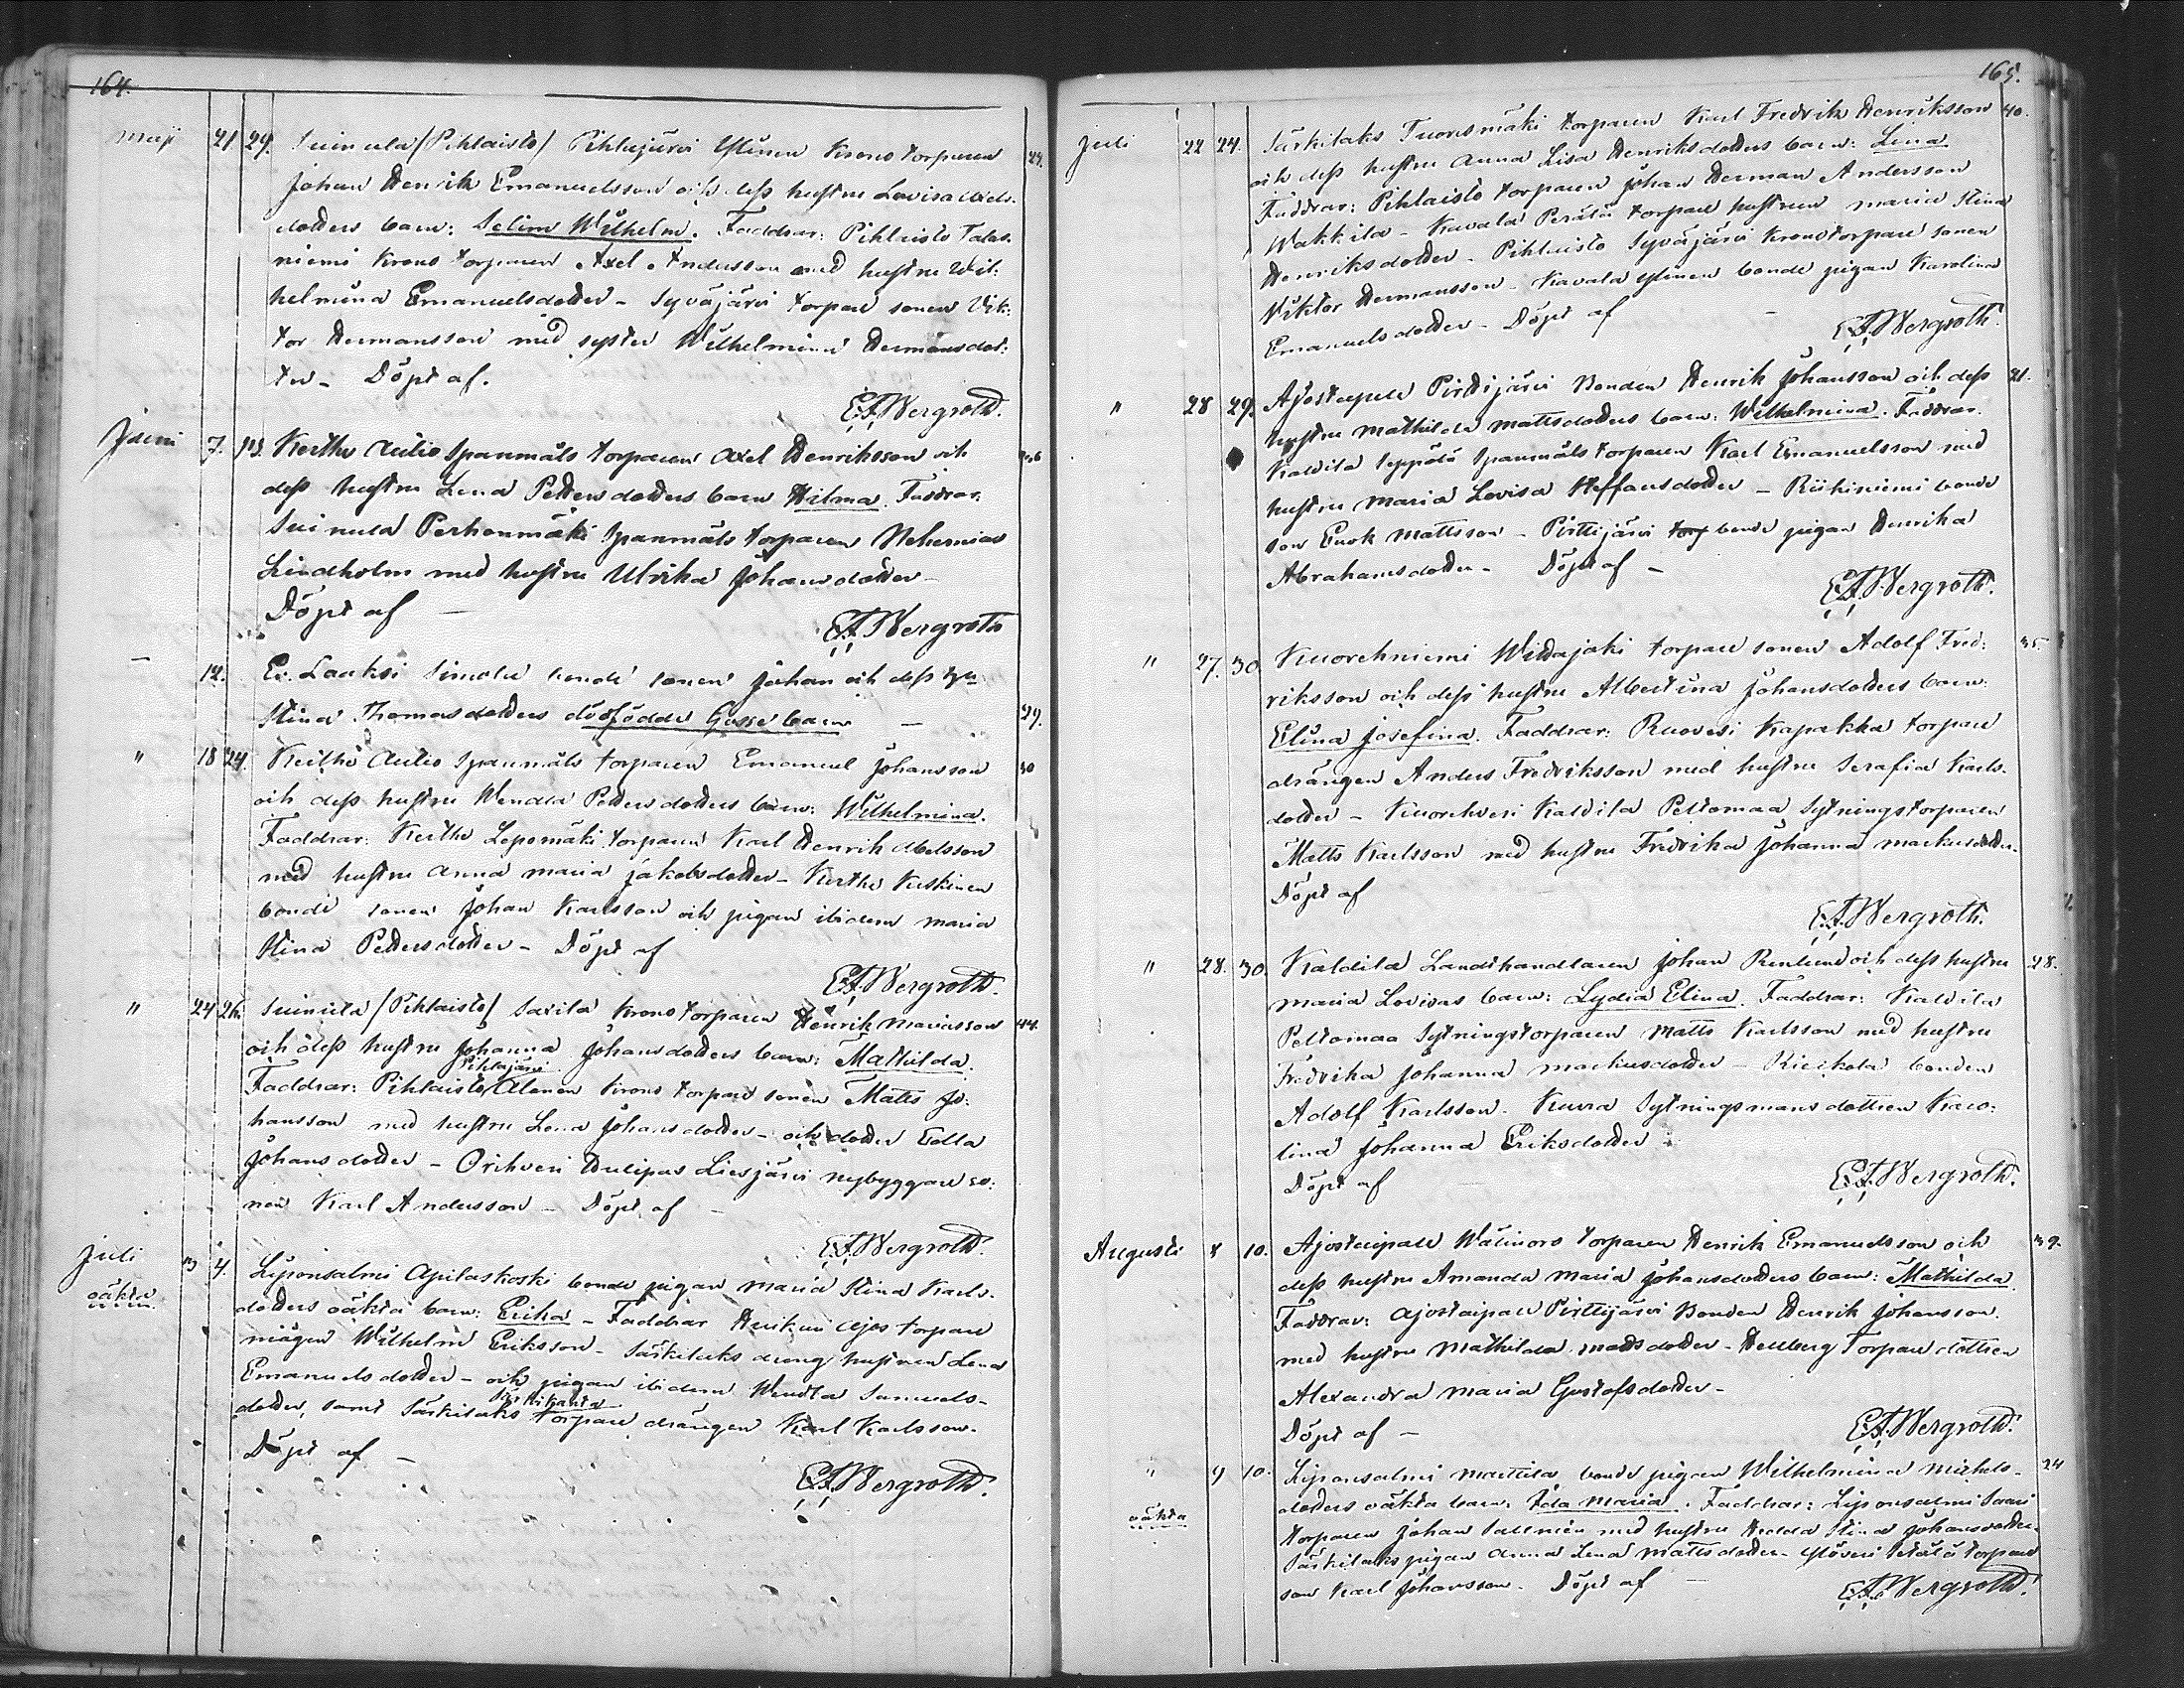 164.
Maji 21 29. Suinula /Pihlaisto/ Pihlajärvi Ylinen Krono torparen 24.
Johan Henrik Emanuelsson och dess hustru Lovisa
dotters barn: Selim Wilhelm. Faddrar: Pihlaisto Talas-
niemi Krono torparen Axel Andersson med hustru Wil-
helmina Emanuelsdotter - Syväjärvi torpare sonen Vik-
tor Hermansson med syster Wilhelmina Hermansdot-
ter - Döpt af.
E.F. Bergroth.
Juni 7. 13. Kertte Aulio Spanmåls torparen Axel Henriksson och
dess hustru Lena Pettersdotters barn Hilma. Faddrar:
Suinula Perhonmäki Spanmåls torparen Nehemias
Lindholm med hustru Ulrika Johansdotter -
Döpt af -
E.F. Bergroth
- 12. Er. Lauksi Simola bonde sonen Johan och dess
Stina Thomasdotters dödfödde Gosse barn - 29.
" 18 24. Kertte Aulio Spanmåls torparen Emanuel Johansson 30
och dess hustru Wendla Pettersdotters barn: Wilhelmina.
Faddrar: Kertte Lepomäki torparen Karl Henrik Abelsson
med hustru Anna Maria Jakobsdotter - Kertte Keskinen
bonde sonen Johan Karlsson och pigan ibidem Maria
Stina Pettersdotter - Döpt af
E.F. Bergroth.
" 24 26. Suinula /Pihlaisto/ Saxila Krono torparen Henrik Mariasson 44.
och dess hustru Johanna Johansdotters barn: Mathilda.
Pihlajärvi
Faddrar: Pihlaisto Alanen Krono torpare sonen Matts Jo-
hansson med hustru Lena Johansdotter - och dotter Edla
Johansdotter - Orihvesi Hulipas Liesjärvi nybyggare so-
nen Karl Andersson - Döpt af -
E.F. Bergroth.
Juli 3 4. Liponsalmi Apilaskoski bonde pigan Maria Stina Karls-
oäkta dotters oäkta barn: Erika - Faddrar Ajos torpare
mågen Wilhelm Eriksson - Särkilaks dreng hustrun Lena
Emanuelsdotter - och pigan ibidem Wendla Samuels-
dotter, samt Särkilaks torpare drängen Karl Karlsson.
Döpt af -
E.F. Bergroth.
165.
Juli 22 24. Särkilaks Tuorusmäki torparen Karl Fredrik Henriksson 40.
och dess hustru Anna Lisa Henriksdotters barn: Lina
Faddrar: Pihlaisto torparen Johan Herman Andersson
Wakkila - Kavala Perälä torpare hustrun Maria Stina
Henriksdotter - Pihlaisto Syväjärvi Kronotorpare sonen
Wiktor Hermansson - Kavala Ylinen bonde pigan Karolina
Emanuelsdotter - Döpt af -
E.F. Bergroth.
" 28 29. Ajostaipale Pirttijärvi Bonden Henrik Johansson och dess 21.
hustru Mathilda Mattsdotters barn: Wilhelmina. Faddrar.
Kaldila Seppälä Spanmåls torparen Karl Emanuelsson med
hustru Maria Lovisa Steffansdotter - Riihiniemi bonde
son Enok Mattsson - Pirttijärvi torp bonde pigan Henrika
Abrahamsdotter - Döpt af -
E.F. Bergroth.
" 27. 30. Kuorehniemi Wiitajoki torpare sonen Adolf Fred- 35.
riksson och dess hustru Albertina Johansdotters barn:
Elina Josefina. Faddrar: Ruovesi Kapakka torpare
drängen Anders Fredriksson med hustru Serafia Karls-
dotter - Kuorehvesi Kaldila Peltomaa Sytningstorparen
Matts Karlsson med hustru Fredrika Johanna Markusdotter.
Döpt af
E.F. Bergroth.
" 28. 30. Kaldila Landthandlaren Johan Renlund och dess hustru 28.
Maria Lovisas barn: Lydia Elina. Faddrar: Kaldila
Peltomaa Sytningstorparen Matts Karlsson med hustru
Fredrika Johanna Markusdotter - bonden
Adolf Karlsson. Kuura Sytningsmans dottren Karo-
lina Johanna Eriksdotter -
Döpt af
E.F. Bergroth.
Augusti 8 10. Ajostaipale Wälinoro torparen Henrik Emanuelsson och 39.
dess hustru Amanda Maria Johansdotters barn: Mathilda.
Faddrar: Ajostaipale Pirttijärvi Bonden Henrik Johansson.
med hustru Mathilda Mattsdotter - Hellberg Torpare dottren
Alexandra Maria Gustafsdotter -
Döpt af -
E.F. Bergroth.
" 9 10. Liponsalmi Mattila bonde pigan Wilhelmina Michels- 24
oäkta dotters oäkta barn: Ida Maria. Faddrar: Liponsalmi Saari
torparen Johan Salenien med hustru Hedda Stina Johansdotter.
Särkilaks pigan Anna Lena Mattsdotter - Ylöveri torpare
son Karl Johansson. Döpt af -
E.F. Bergroth.